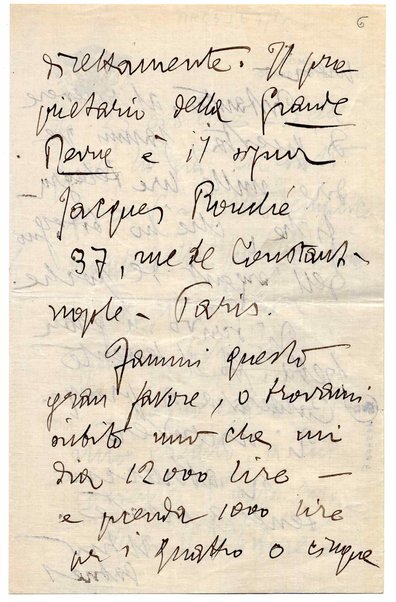 6
direttamente. Il pro
prietario della Grande
Revue è il signor
Jacques Rouché
37, rue de Constanti-
nople - Paris.
Fammi questo
gran favore, o trovami
subito uno che mi
dia 12000 lire —
e prenda 1000 lire
per i quattro o cinque